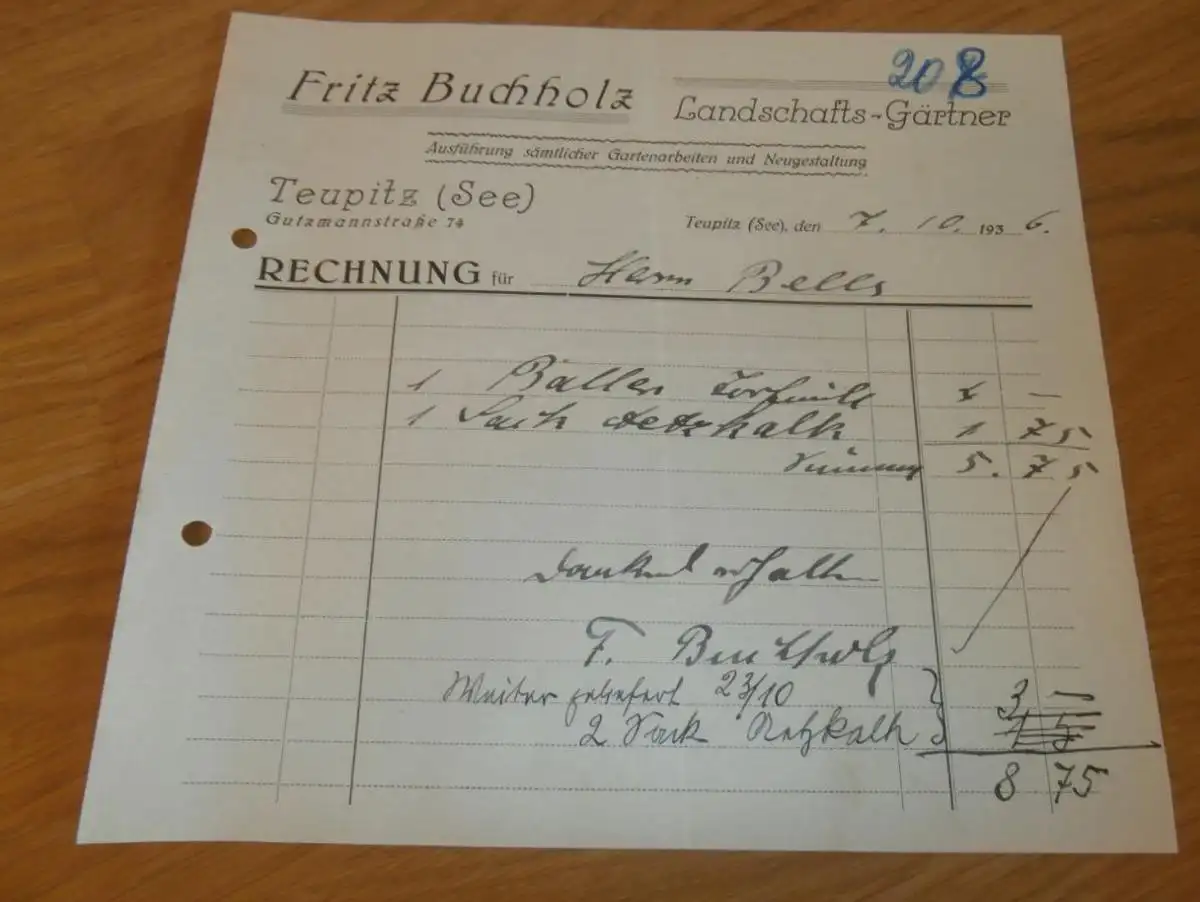 208
Fritz Buchholz
Landschafts-Gärtner
Ausführung sämtlicher Gartenarbeiten und Neugestaltung
Teupitz (See)
Gutzmannstraße 74
Teupitz (See), den 7. 10. 1936.
RECHNUNG für Herrn
1 Ballen Torfmull 4 —
1 Sack Aetzkalk 1 75
Summa 5. 75
Dankend erhalten
F. Buchholz
Weiter geliefert 23/10 3 —
2 Sack Aetzkalk
8 75